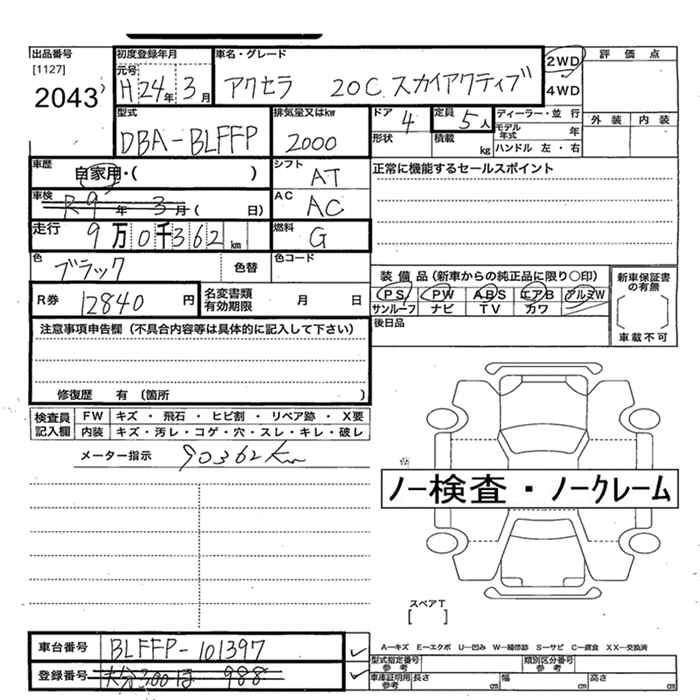 出品番号 初度登録年月 車名・グレード 評価点
[1127] 元号 2WD
2043 H24年 3月 アクセラ 20C スカイアクティブ 4WD
型式 排気量又はkw ドア 4 定員 5人 ディーラー・並行 外装 内装
DBA-BLFFP 2000 形状 積載 kg モデル年式 年
ハンドル 左・右
車歴 自家用・( ) シフト AT 正常に機能するセールスポイント
車検 R9年 3月( 日) AC AC
走行 9万0千362km 燃料 G
色 ブラック 色替 色コード
装備品(新車からの純正品に限り〇印) 新車保証書の有無
R券 12840円 名変書類有効期限 月 日 PS PW ABS エアB アルミW
サンルーフ ナビ TV カワ
注意事項申告欄(不具合内容等は具体的に記入して下さい) 後日品 車載不可
修復歴 有(箇所 )
検査員記入欄 FW キズ・飛石・ヒビ割・リペア跡・X要
内装 キズ・汚レ・コゲ・穴・スレ・キレ・破レ
メーター指示 90362km
ノー検査・ノークレーム
スペアT
[ ]
車台番号 BLFFP-101397 A―キズ E―エクボ U―凹み W―補修跡 S―サビ C―腐食 XX―交換済
型式指定番号参考 類別区分番号参考
登録番号 大分300ほ 988 車庫証明用参考 長さ cm 幅 cm 高さ cm